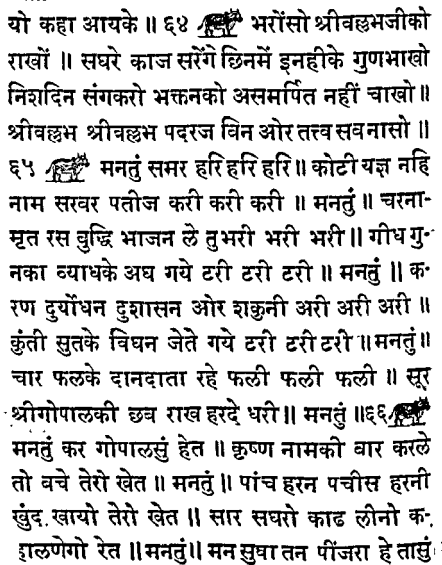 यो कहा आयके ॥ ६४ भरोंसो श्रीवल्लभजीको
राखों ॥ सघरे काज सरेंगे छिनमें इनहीके गुणभाखो
निशदिन संगकरो भक्तनको असमर्पित नहीं चाखो॥
श्रीवल्लभ श्रीवल्लभ पदरज विन ओर तत्त्व सवनासो ॥
६५ मनतुं समर हरि हरि हरि॥ कोटी यज्ञ नहि
नाम सरवर पतीज करी करी करी ॥ मनतुं ॥ चरना-
मृत रस बुद्धि भाजन ले तुभरी भरी भरी॥ गीध गु-
नका व्याधके अघ गये टरी टरी टरी ॥ मनतुं ॥ क-
रण दुर्योधन दुशासन ओर शकुनी अरी अरी अरी ॥
कुंती सुतके विघन जेते गये टरी टरी टरी ॥मनतुं॥
चार फलके दानदाता रहे फली फली फली ॥ सूर
श्रीगोपालकी छब राख हरदे धरी॥ मनतुं ॥६६
मनतुं कर गोपालसुं हेत ॥ कृष्ण नामकी वार करले
तो बचे तेरो खेत ॥ मनतुं ॥ पांच हरन पचीस हरनी
खुंद खायो तेरो खेत ॥ सार सघरो काढ लीनो क-
हालणेगो रेत ॥मनतुं॥ मन सुवा तन पींजरा हे तासुं